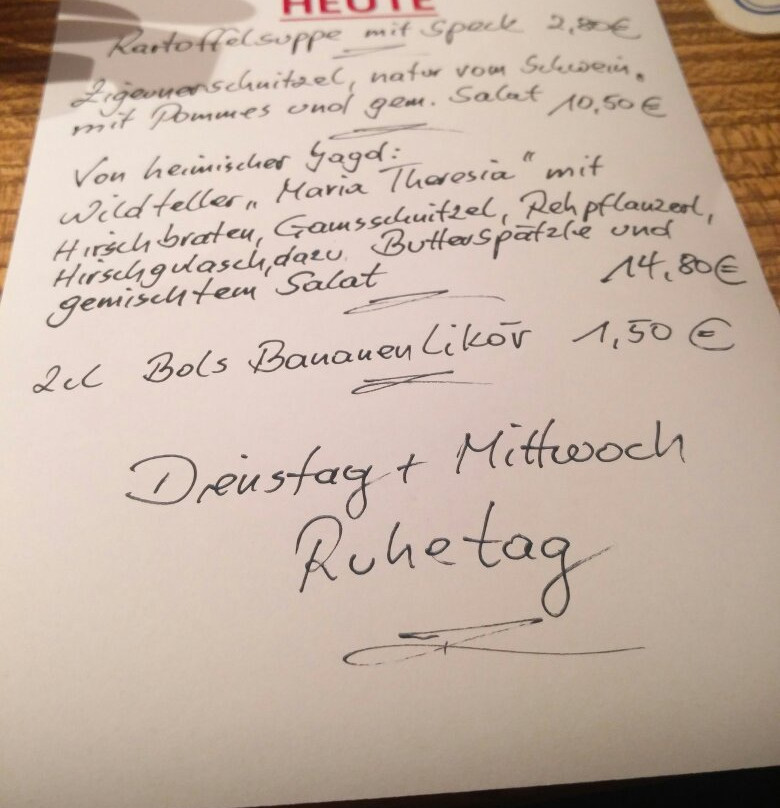 HEUTE
Kartoffelsuppe mit Speck 2,80€
Zigeunerschnitzel, natur vom Schwein,
mit Pommes und gem. Salat 10,50€
Von heimischer Jagd:
Wildteller „Maria Theresia" mit
Hirschbraten, Gamsschnitzel, Rehpflanzerl,
Hirschgulasch, dazu Butterspätzle und
gemischtem Salat 14,80€
2cl Bols Bananenlikör 1,50 €
Dienstag + Mittwoch
Ruhetag